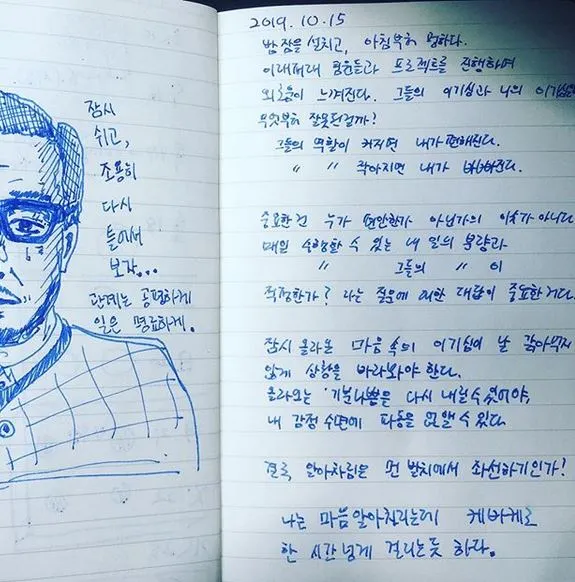 잠시
쉬고,
조용히
다시
틀에서
보자...
관계는 공평하게
일은 명료하게.
2019.10.15
밤잠을 설치고, 아침부터 멍하다.
이래저래 팀원들과 프로젝트를 진행하며
외로움이 느껴진다. 그들의 이기심과 나의 이기심은
무엇부터 잘못된걸까?
그들의 역할이 커지면 내가 편해진다.
" " 작아지면 내가 바빠진다.
중요한건 누가 편안한가 아닌가의 이슈가 아니다
매일 수행할 수 있는 내 일의 분량과
" 그들의 " 이
적정한가? 라는 질문에 대한 대답이 중요한거다.
잠시 올라온 마음 속의 이기심이 날 갉아먹지
않게 상황을 바라봐야 한다.
올라오는 '기분나쁨을 다시 내릴 수 있어야,
내 감정 수면에 파동을 없앨 수 있다
결국 알아차림은 먼 발치에서 좌선하기인가!
나는 마음 알아차리는데 케바케로
한 시간 넘게 걸리는듯 하다.